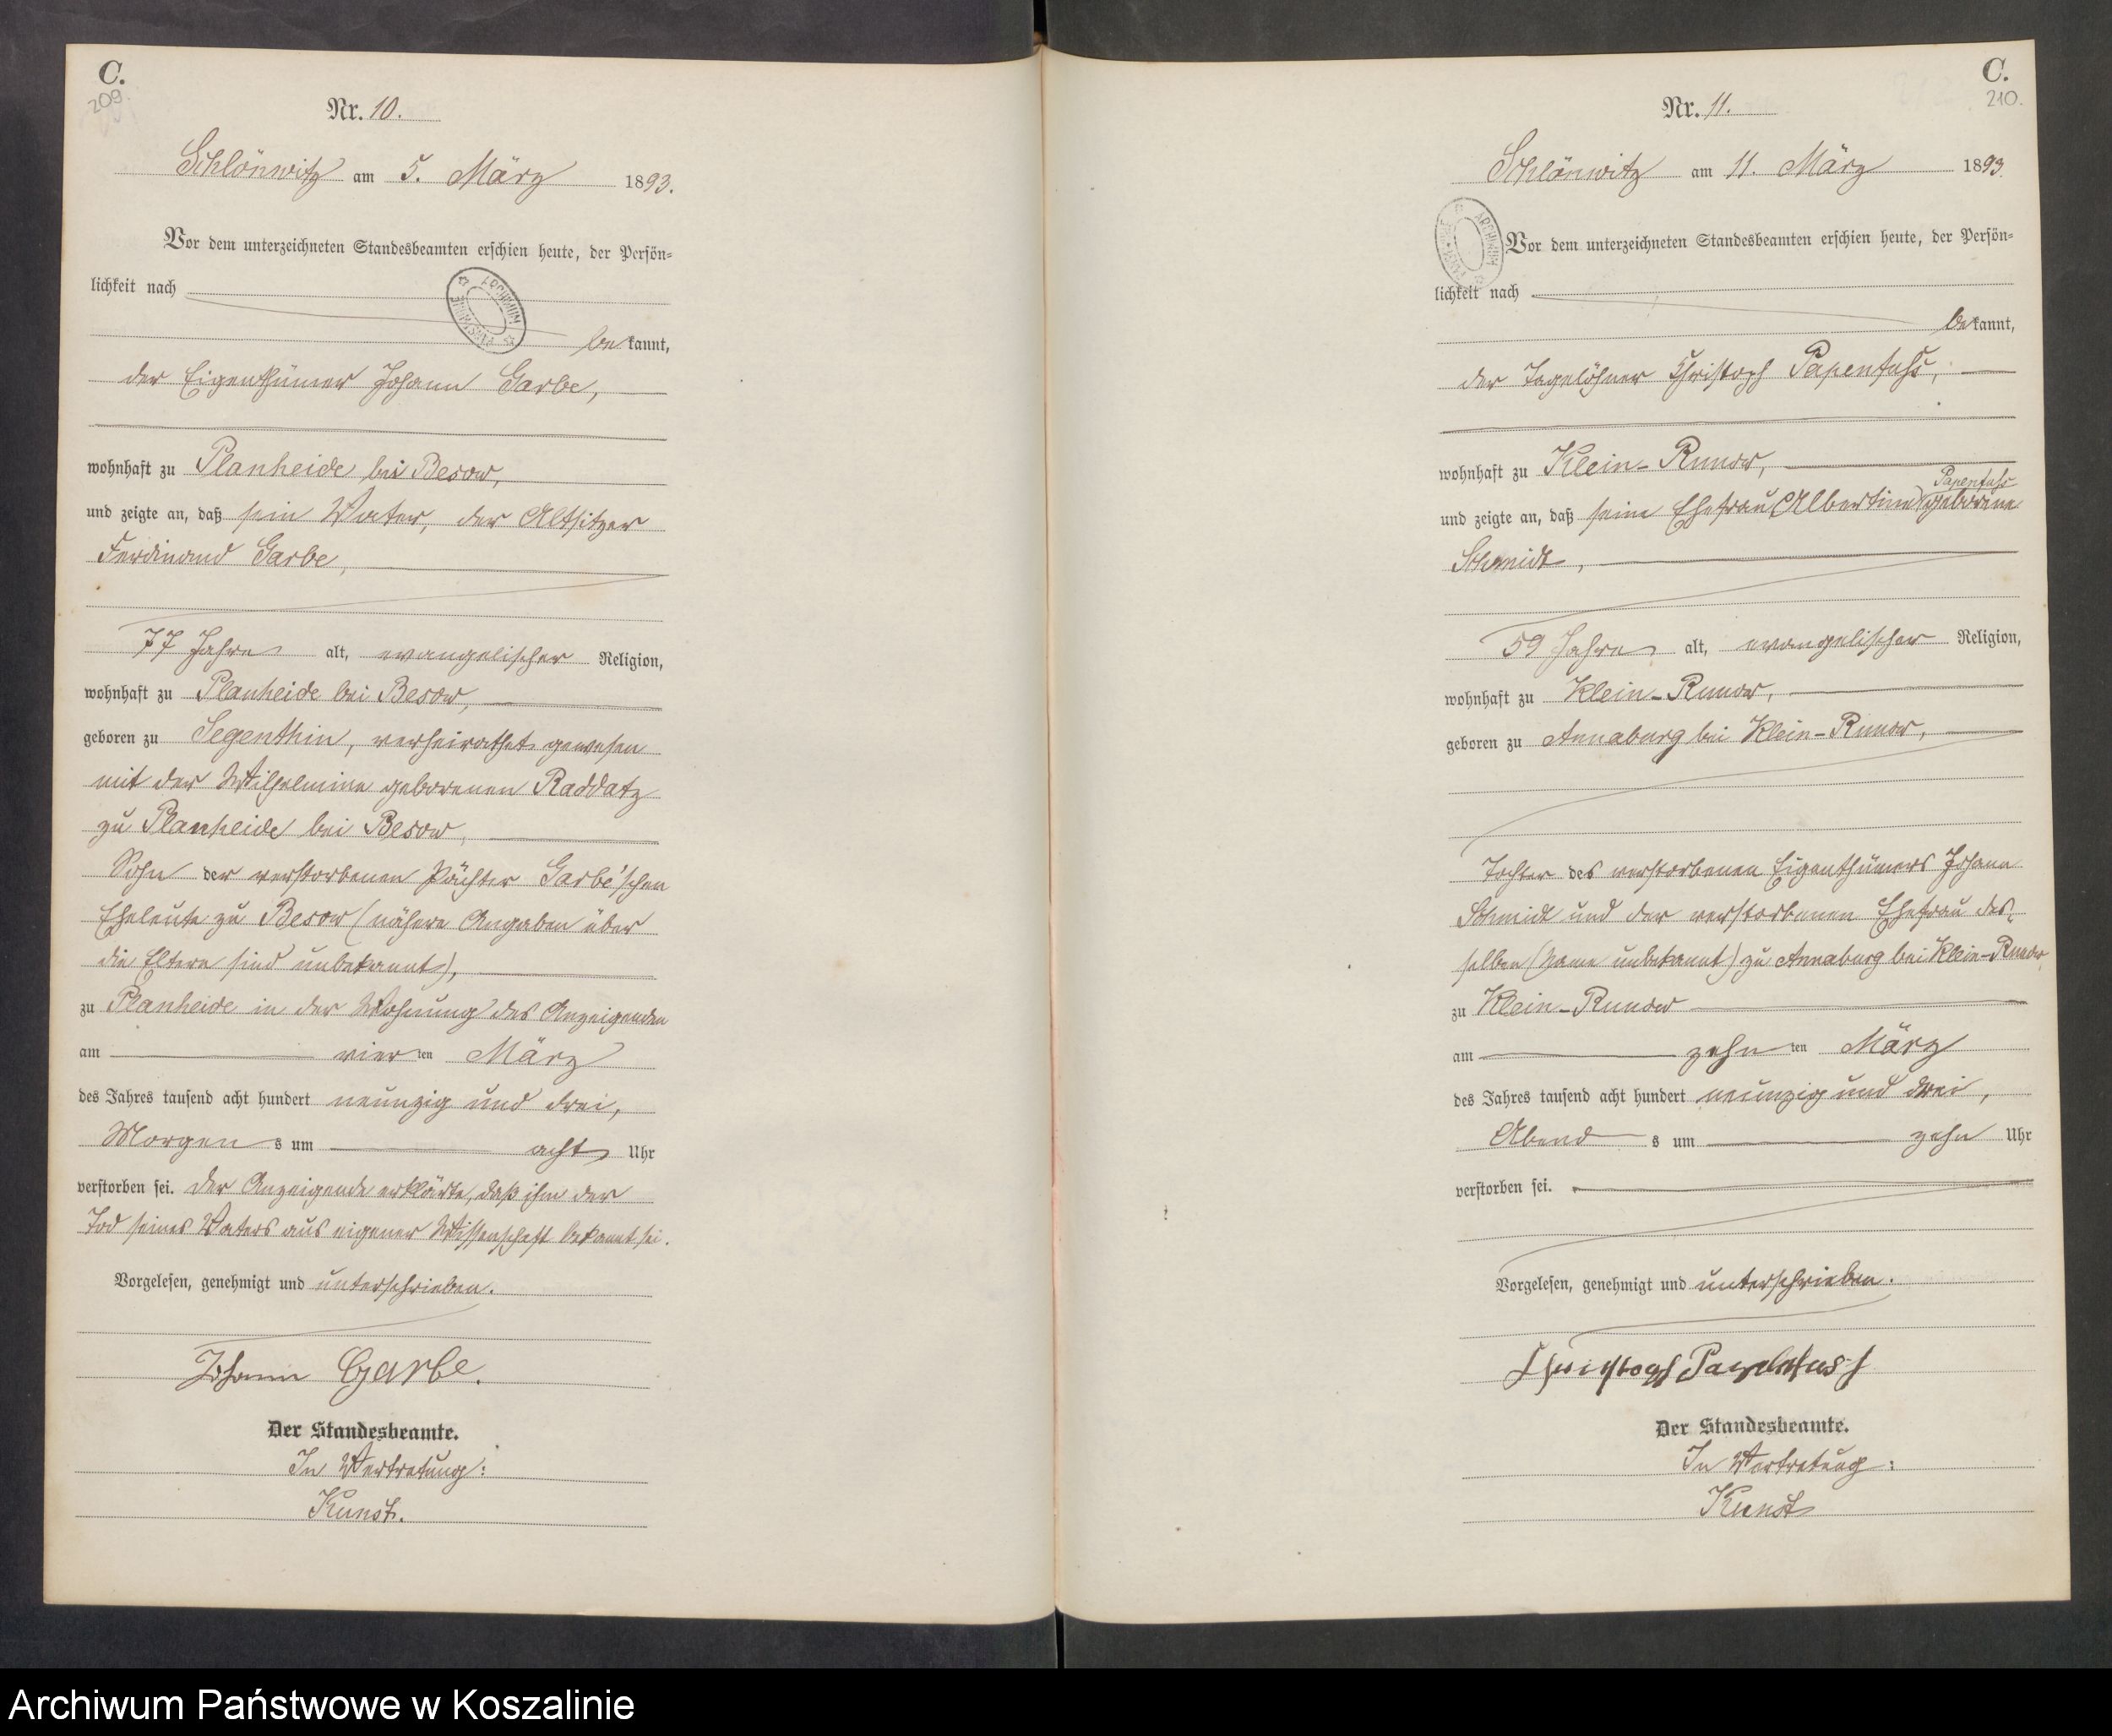 C.
209.
Nr. 10.
Schlönwitz am 5. März 1893.
Vor dem unterzeichneten Standesbeamten erschien heute, der Persön-
lichkeit nach
bekannt,
der Eigenthümer Johann Garbe,
wohnhaft zu Planheide bei Besow,
und zeigte an, daß sein Vater, der Altsitzer
Ferdinand Garbe,
77 Jahre alt, evangelischer Religion,
wohnhaft zu Planheide bei Besow,
geboren zu Segenthin, verheirathet gewesen
mit der Wilhelmine geborenen Raddatz
zu Planheide bei Besow,
Sohn der verstorbenen Pächter Garbe'schen
Eheleute zu Besow (nähere Angaben über
die Eltern sind unbekannt),
zu Planheide in der Wohnung des Anzeigenden
am vierten März
des Jahres tausend acht hundert neunzig und drei,
Morgens um acht Uhr
verstorben sei. Der Anzeigende erklärte, daß ihm der
Tod seines Vaters aus eigener Wissenschaft bekannt sei.
Vorgelesen, genehmigt und unterschrieben.
Johann Garbe.
Der Standesbeamte.
In Vertretung:
Kunst.
C.
210.
Nr. 11.
Schlönwitz am 11. März 1893.
Vor dem unterzeichneten Standesbeamten erschien heute, der Persön-
lichkeit nach
bekannt,
der Tagelöhner Christoph Papenfuß,
wohnhaft zu Klein-Runow,
Papenfuß
und zeigte an, daß seine Ehefrau Albertine geborene
Schmidt,
59 Jahre alt, evangelischer Religion,
wohnhaft zu Klein-Runow,
geboren zu Annaburg bei Klein-Runow,
Tochter des verstorbenen Eigenthümers Johann
Schmidt und der verstorbenen Ehefrau des-
selben (Name unbekannt) zu Annaburg bei Klein-Runow,
zu Klein-Runow
am zehnten März
des Jahres tausend acht hundert neunzig und drei,
Abends um zehn Uhr
verstorben sei.
Vorgelesen, genehmigt und unterschrieben.
Christoph Papenfuss
Der Standesbeamte.
In Vertretung:
Kunst
Archiwum Państwowe w Koszalinie